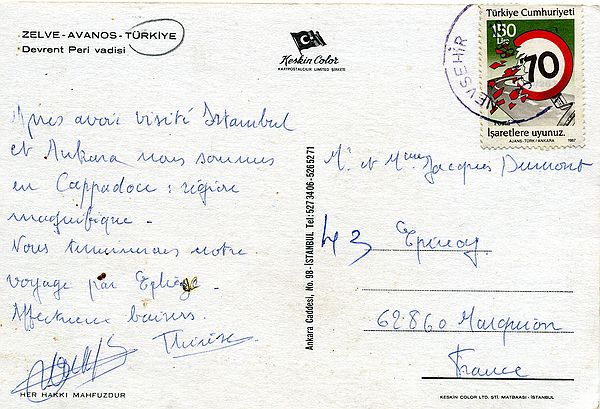 ZELVE-AVANOS-TÜRKİYE
Devrent Peri vadisi
Keskin Color
KARTPOSTALCILIK LIMITED ŞİRKETİ
NEVŞEHİR
Türkiye Cumhuriyeti
150
Lira
70
İşaretlere uyunuz.
AJANS-TÜRK/ANKARA 1987
Après avoir visité Istambul
et Ankara nous sommes
en Cappadoce : région
magnifique.
Nous terminerons notre
voyage par Ephèse.
Affectueux baisers.
Thérèse
HER HAKKI MAHFUZDUR
Ankara Caddesi, No. 98 - İSTANBUL Tel: 527 34 06 - 526 52 71
Mr et Mme Jacques Dumont
43 Epinoy
62860 Marquion
France
KESKİN COLOR LTD. ŞTİ. MATBAASI - İSTANBUL